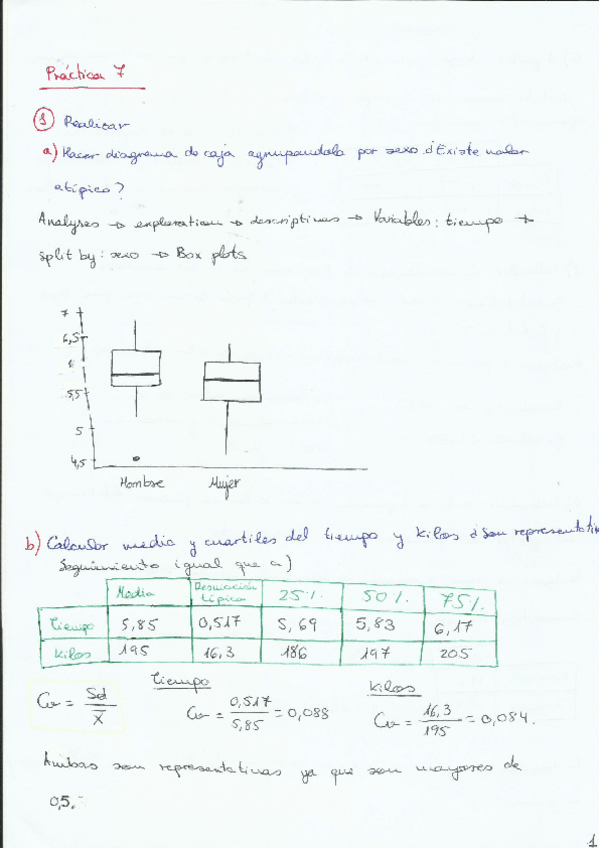 Práctica 7
1 Realizar
a) Hacer diagrama de caja agrupandolo por sexo ¿Existe valor
atípico?
Analyses → exploration → descriptives → Variables: tiempo →
Split by: sexo → Box plots
7
6,5
6
5,5
5
4,5
Hombre Mujer
b) Calcular media y cuartiles del tiempo y kilos ¿Son representativ
Seguimiento igual que a)
Media Desviación típica 25% 50% 75%
Tiempo 5,85 0,517 5,69 5,83 6,17
Kilos 195 16,3 186 197 205
Tiempo Kilos
Cv = Sd / x̄ Cv = 0,517 / 5,85 = 0,088 Cv = 16,3 / 195 = 0,084.
Ambas son representativas ya que son mayores de
0,5.
1